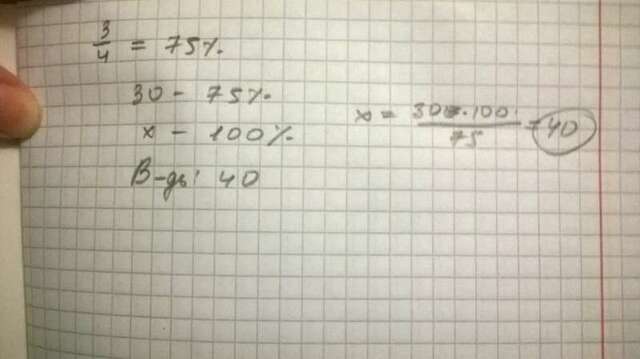 3/4 = 75%.
30 - 75%.
x - 100%.
x = 30·100 / 75 = 40
В-дь: 40